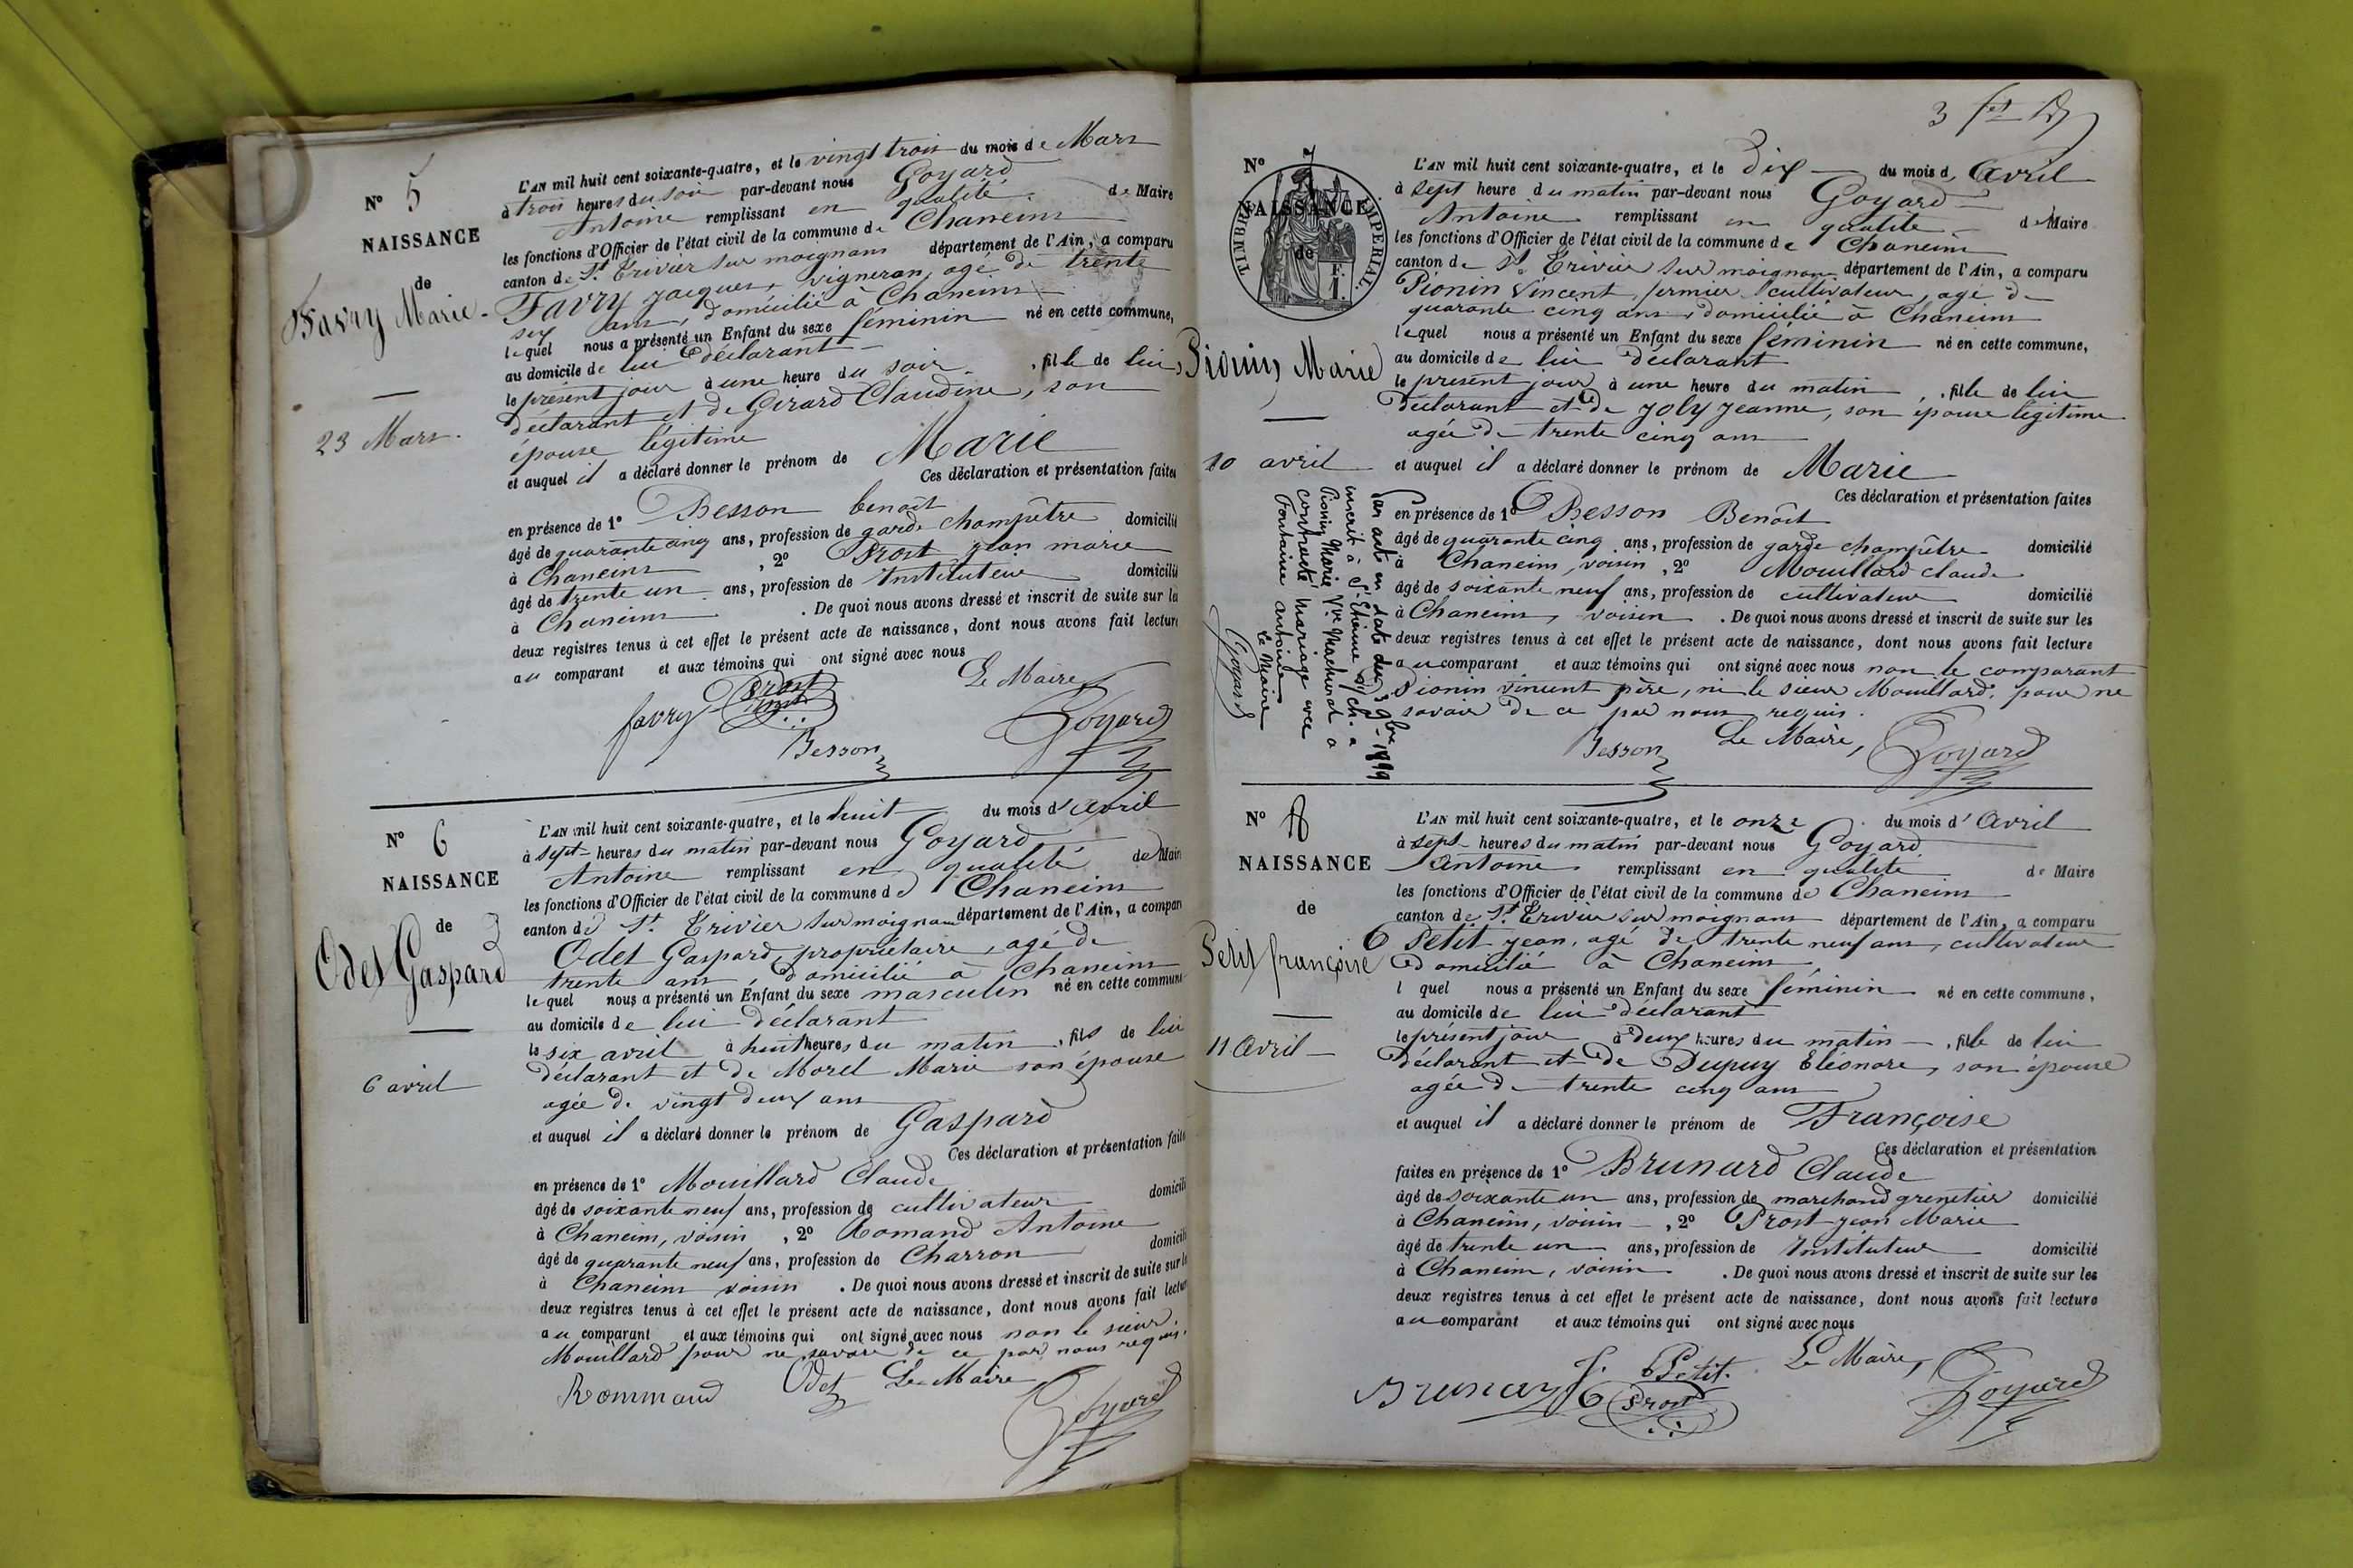 N° 5
NAISSANCE
de
Favry Marie
23 Mars.
L'AN mil huit cent soixante-quatre, et le vingt trois du mois de Mars
à trois heures du soir par-devant nous Goyard
Antoine remplissant en qualité de Maire
les fonctions d'Officier de l'état civil de la commune de Chaneins
canton de St Trivier sur moignans département de l'Ain, a comparu
Favry Jacques, vigneron, agé de trente
six ans, domicilié à Chaneins
lequel nous a présenté un Enfant du sexe féminin né en cette commune,
au domicile de lui déclarant
le présent jour à une heure du soir, fille de lui
déclarant et de Girard Claudine, son
épouse légitime
et auquel il a déclaré donner le prénom de Marie
Ces déclaration et présentation faites
en présence de 1° Besson benoît
âgé de quarante cinq ans, profession de garde champêtre domicilié
à Chaneins, 2° Prost jean marie
âgé de trente un ans, profession de Instituteur domicilié
à Chaneins. De quoi nous avons dressé et inscrit de suite sur les
deux registres tenus à cet effet le présent acte de naissance, dont nous avons fait lecture
au comparant et aux témoins qui ont signé avec nous
Le Maire
favry Prost
Besson Goyard
N° 6
NAISSANCE
de
Odet Gaspard
6 avril
L'AN mil huit cent soixante-quatre, et le huit du mois d'avril
à sept heures du matin par-devant nous Goyard
Antoine remplissant en qualité de Maire
les fonctions d'Officier de l'état civil de la commune de Chaneins
canton de St. Trivier sur moignans département de l'Ain, a comparu
Odet Gaspard, propriétaire, agé de
trente ans, domicilié à Chaneins
lequel nous a présenté un Enfant du sexe masculin né en cette commune
au domicile de lui déclarant
le six avril à huit heures du matin, fils de lui
déclarant et de Morel Marie son épouse
agée de vingt deux ans
et auquel il a déclaré donner le prénom de Gaspard
Ces déclaration et présentation faites
en présence de 1° Mouillard Claude
âgé de soixante neuf ans, profession de cultivateur domicilié
à Chaneins, voisin, 2° Romand Antoine
âgé de quarante neuf ans, profession de Charron domicilié
à Chaneins voisin. De quoi nous avons dressé et inscrit de suite sur les
deux registres tenus à cet effet le présent acte de naissance, dont nous avons fait lecture
au comparant et aux témoins qui ont signé avec nous non le sieur
Mouillard pour ne savoir de ce par nous requis.
Rommand Odet Le Maire
Goyard
3
N° 7
NAISSANCE
de
TIMBRE IMPERIAL
Pionin Marie
10 avril
Par acte en date du 9bre 1899
inscrit à St Etienne s/ ch. a
Pionin Marie Vve Machurat a
contracté mariage avec
Fontaine antoine
Le Maire
Goyard
L'AN mil huit cent soixante-quatre, et le dix du mois d'Avril
à sept heure du matin par-devant nous Goyard
Antoine remplissant en qualité de Maire
les fonctions d'Officier de l'état civil de la commune de Chaneins
canton de St. Trivier sur moignans département de l'Ain, a comparu
Pionin Vincent, fermier cultivateur, agé de
quarante cinq ans, domicilié à Chaneins
lequel nous a présenté un Enfant du sexe féminin né en cette commune,
au domicile de lui déclarant
le present jour à une heure du matin, fille de lui
déclarant et de Joly Jeanne, son épouse légitime
agée de trente cinq ans
et auquel il a déclaré donner le prénom de Marie
Ces déclaration et présentation faites
en présence de 1° Besson Benoît
âgé de quarante cinq ans, profession de garde champêtre domicilié
à Chaneins, voisin, 2° Mouillard claude
âgé de soixante neuf ans, profession de cultivateur domicilié
à Chaneins, voisin. De quoi nous avons dressé et inscrit de suite sur les
deux registres tenus à cet effet le présent acte de naissance, dont nous avons fait lecture
au comparant et aux témoins qui ont signé avec nous non le comparant
Pionin vincent père, ni le sieur Mouillard, pour ne
savoir de ce par nous requis.
Besson Le Maire, Goyard
N° 8
NAISSANCE
de
Petit françoise
11 Avril
L'AN mil huit cent soixante-quatre, et le onze du mois d'Avril
à sept heures du matin par-devant nous Goyard
Antoine remplissant en qualité de Maire
les fonctions d'Officier de l'état civil de la commune de Chaneins
canton de St. Trivier sur moignans département de l'Ain, a comparu
Petit jean, agé de trente neuf ans, cultivateur
domicilié à Chaneins
l quel nous a présenté un Enfant du sexe féminin né en cette commune,
au domicile de lui déclarant
le présent jour à deux heures du matin, fille de lui
déclarant et de Dupuy Eléonore, son épouse
agée de trente cinq ans
et auquel il a déclaré donner le prénom de Françoise
Ces déclaration et présentation
faites en présence de 1° Brunard Claude
âgé de soixante un ans, profession de marchand grenetier domicilié
à Chaneins, voisin, 2° Prost jean Marie
âgé de trente un ans, profession de Instituteur domicilié
à Chaneins, voisin. De quoi nous avons dressé et inscrit de suite sur les
deux registres tenus à cet effet le présent acte de naissance, dont nous avons fait lecture
au comparant et aux témoins qui ont signé avec nous
J. Petit. Le Maire,
Prost Goyard